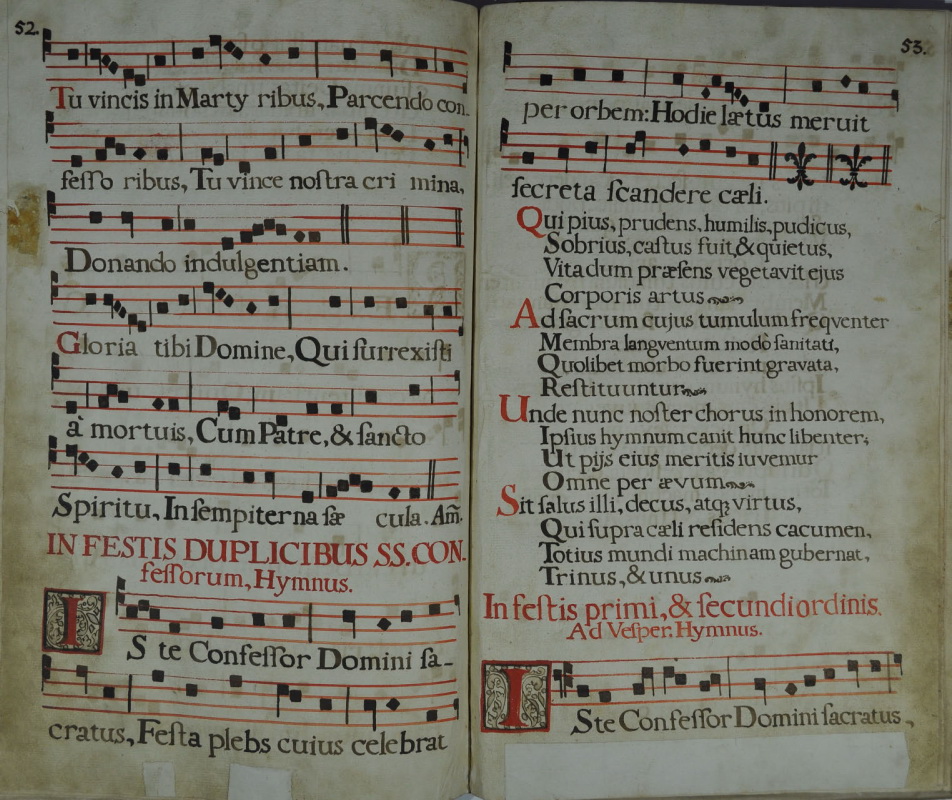 52.
Tu vincis in Marty ribus, Parcendo con-
feſſo ribus, Tu vince noſtra cri mina,
Donando indulgentiam.
Gloria tibi Domine, Qui ſurrexiſti
à mortuis, Cum Patre, & ſancto
Spiritu, In ſempiterna ſæ cula. Am̃.
IN FESTIS DUPLICIBUS SS. CON-
feſſorum, Hymnus.
IS te Confeſſor Domini ſa-
cratus, Feſta plebs cuius celebrat
53.
per orbem: Hodie lætus meruit
ſecreta ſcandere cæli.
Qui pius, prudens, humilis, pudicus,
Sobrius, caſtus fuit, & quietus,
Vita dum præſens vegetavit ejus
Corporis artus
Ad ſacrum cujus tumulum freqventer
Membra langventum modò ſanitati,
Quolibet morbo fuerint gravata,
Reſtituuntur
Unde nunc noſter chorus in honorem,
Ipſius hymnum canit hunc libenter;
Ut pijs eius meritis iuvemur
Omne per ævum
Sit ſalus illi, decus, atqꝫ virtus,
Qui ſupra cæli reſidens cacumen,
Totius mundi machinam gubernat,
Trinus, & unus
In feſtis primi, & ſecundi ordinis.
Ad Veſper. Hymnus.
ISte Confeſſor Domini ſacratus,